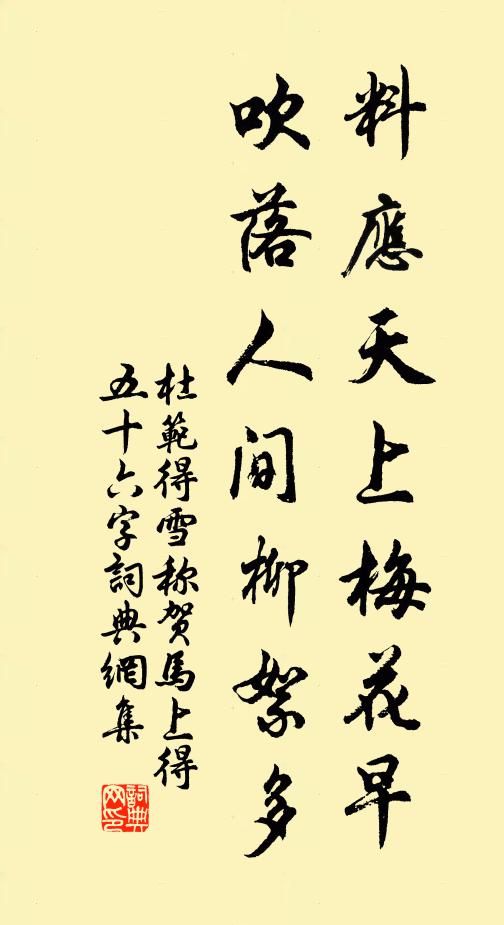 料應天上梅花早
吹落人间柳絮多
杜範得雪称贺馬上得
五十六字詞典網集
詞典
网印